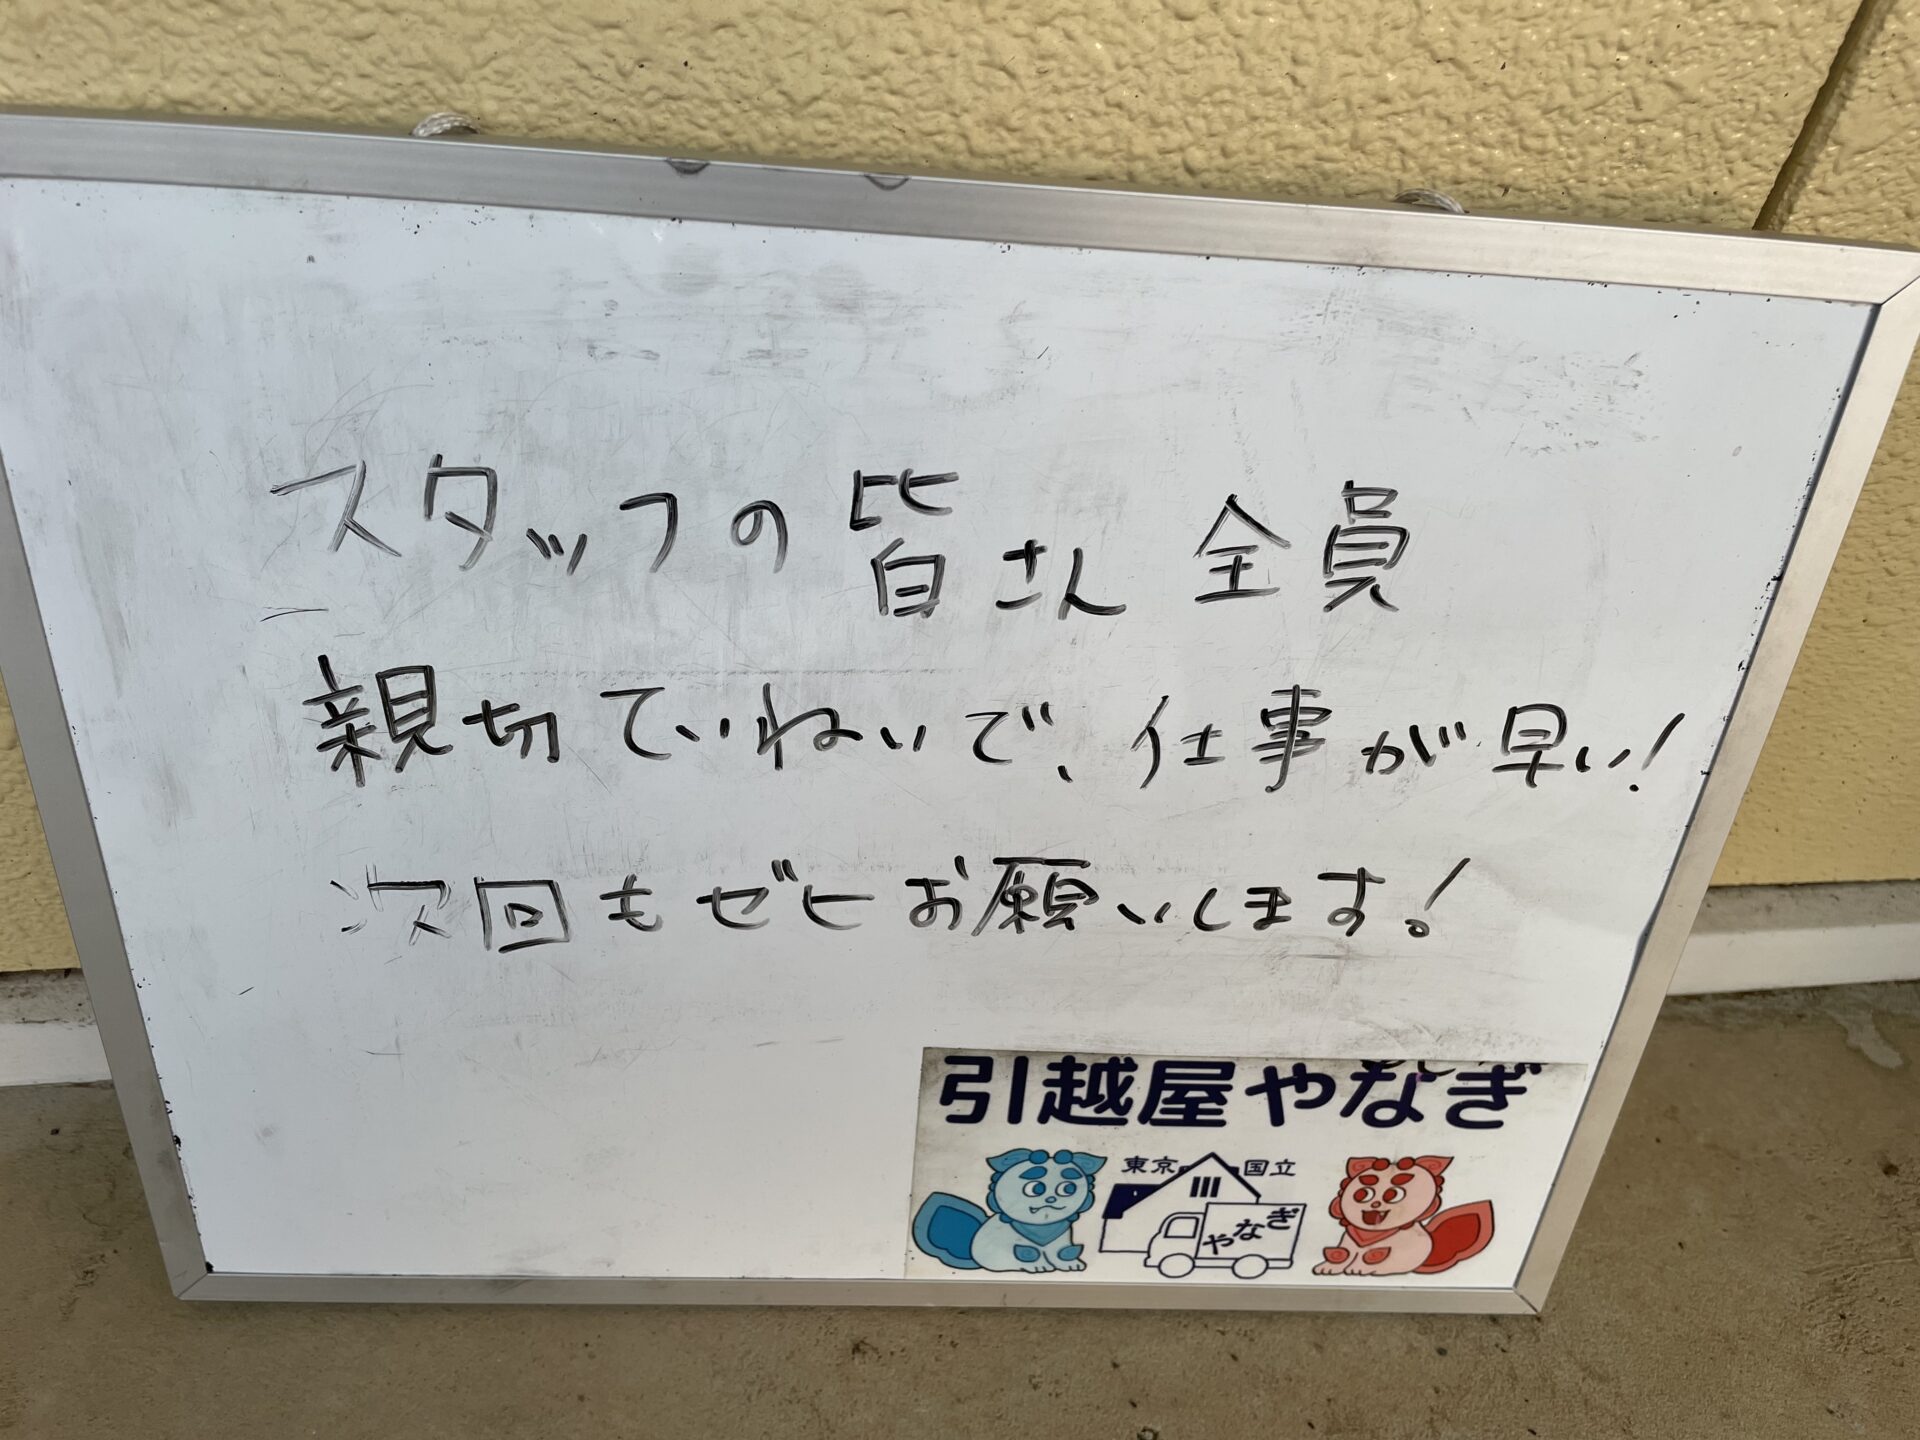 スタッフの皆さん 全員
親切ていねいで、仕事が早い!
次回もゼヒお願いします!
引越屋やなぎ
東京 国立
やなぎ